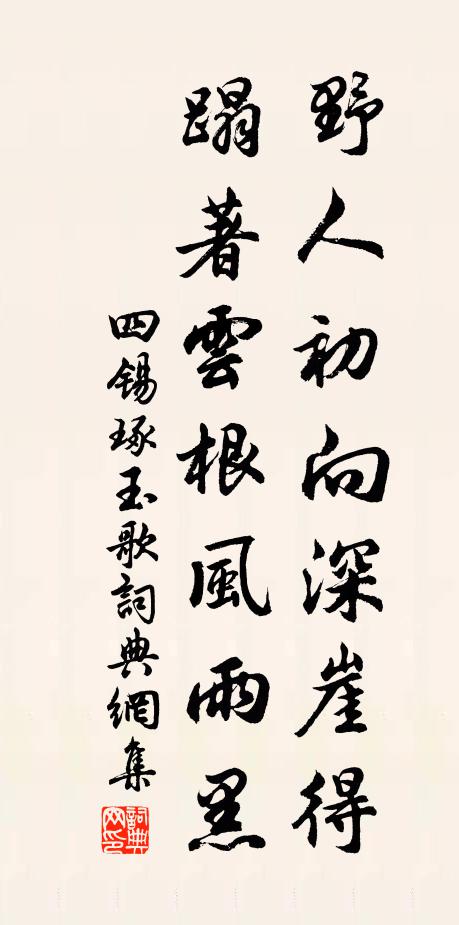 野人初向深崖得
蹋著雲根風雨黑
四錫琢玉歌詞典網集
詞典网印